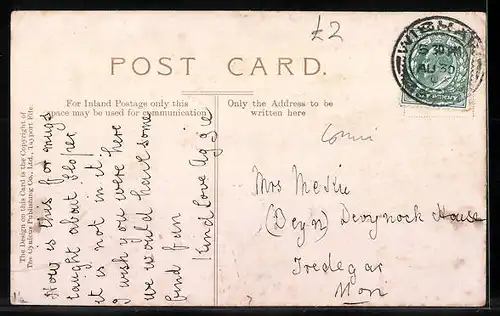 £2
POST CARD.
For Inland Postage only this
space may be used for communication
Only the Address to be
written here
5 30 PM
AU 30
The Design on this Card is the Copyright of
Co., Ltd., Tayport Fife.
How is this for mugs
taught about Sloper
it is not in it.
I wish you were here
we would have some
find fun
Kind love Aggie
Mrs
(Deyn) Devynock House
Tredegar
Mon